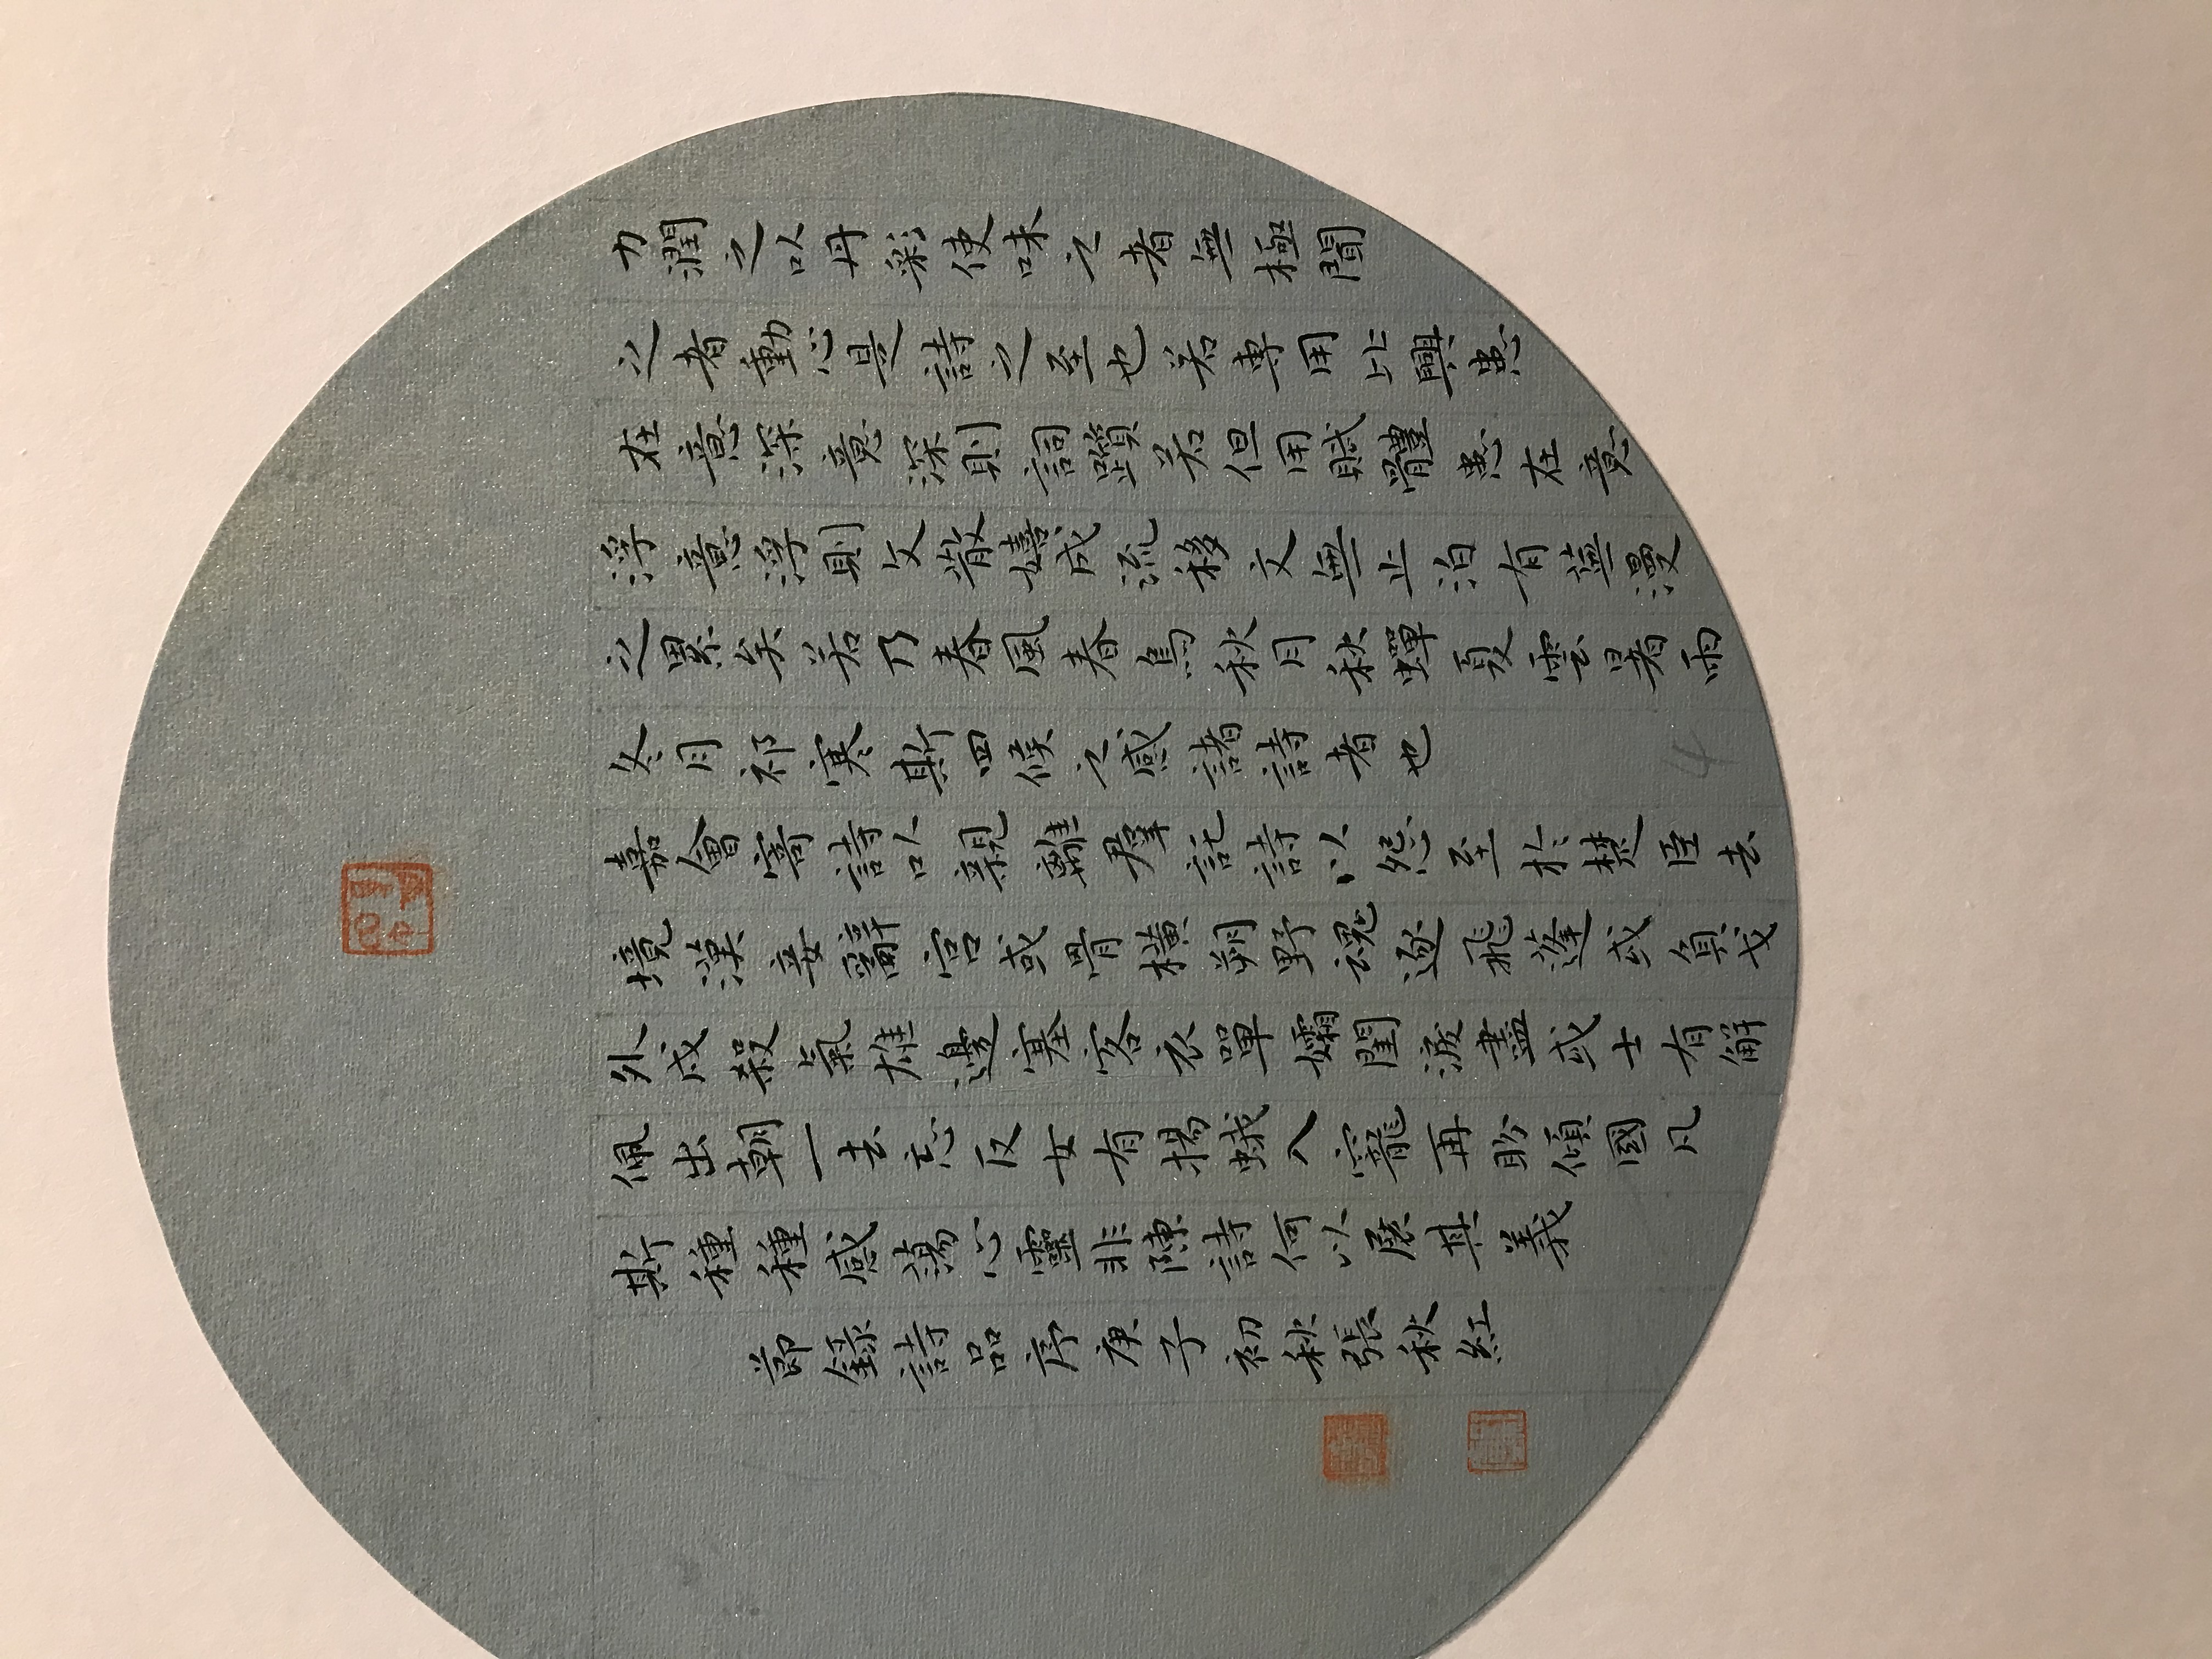 力潤之以丹彩使味之者無極聞
之者動心是詩之至也若專用比興患
在意深意深則詞躓若但用賦體患在意
浮意浮則文散嬉成流移文無止泊有蕪漫
之累矣若乃春風春鳥秋月秋蟬夏雲暑雨
冬月祁寒斯四候之感諸詩者也
嘉會寄詩以親離群託詩以怨至於楚臣去
境漢妾辭宮或骨橫朔野魂逐飛蓬或負戈
外戍殺氣雄邊塞客衣單孀閨淚盡或士有解
佩出朝一去忘反女有揚蛾入寵再盼傾國凡
斯種種感蕩心靈非陳詩何以展其義
節錄詩品序庚子初秋張秋紅
4